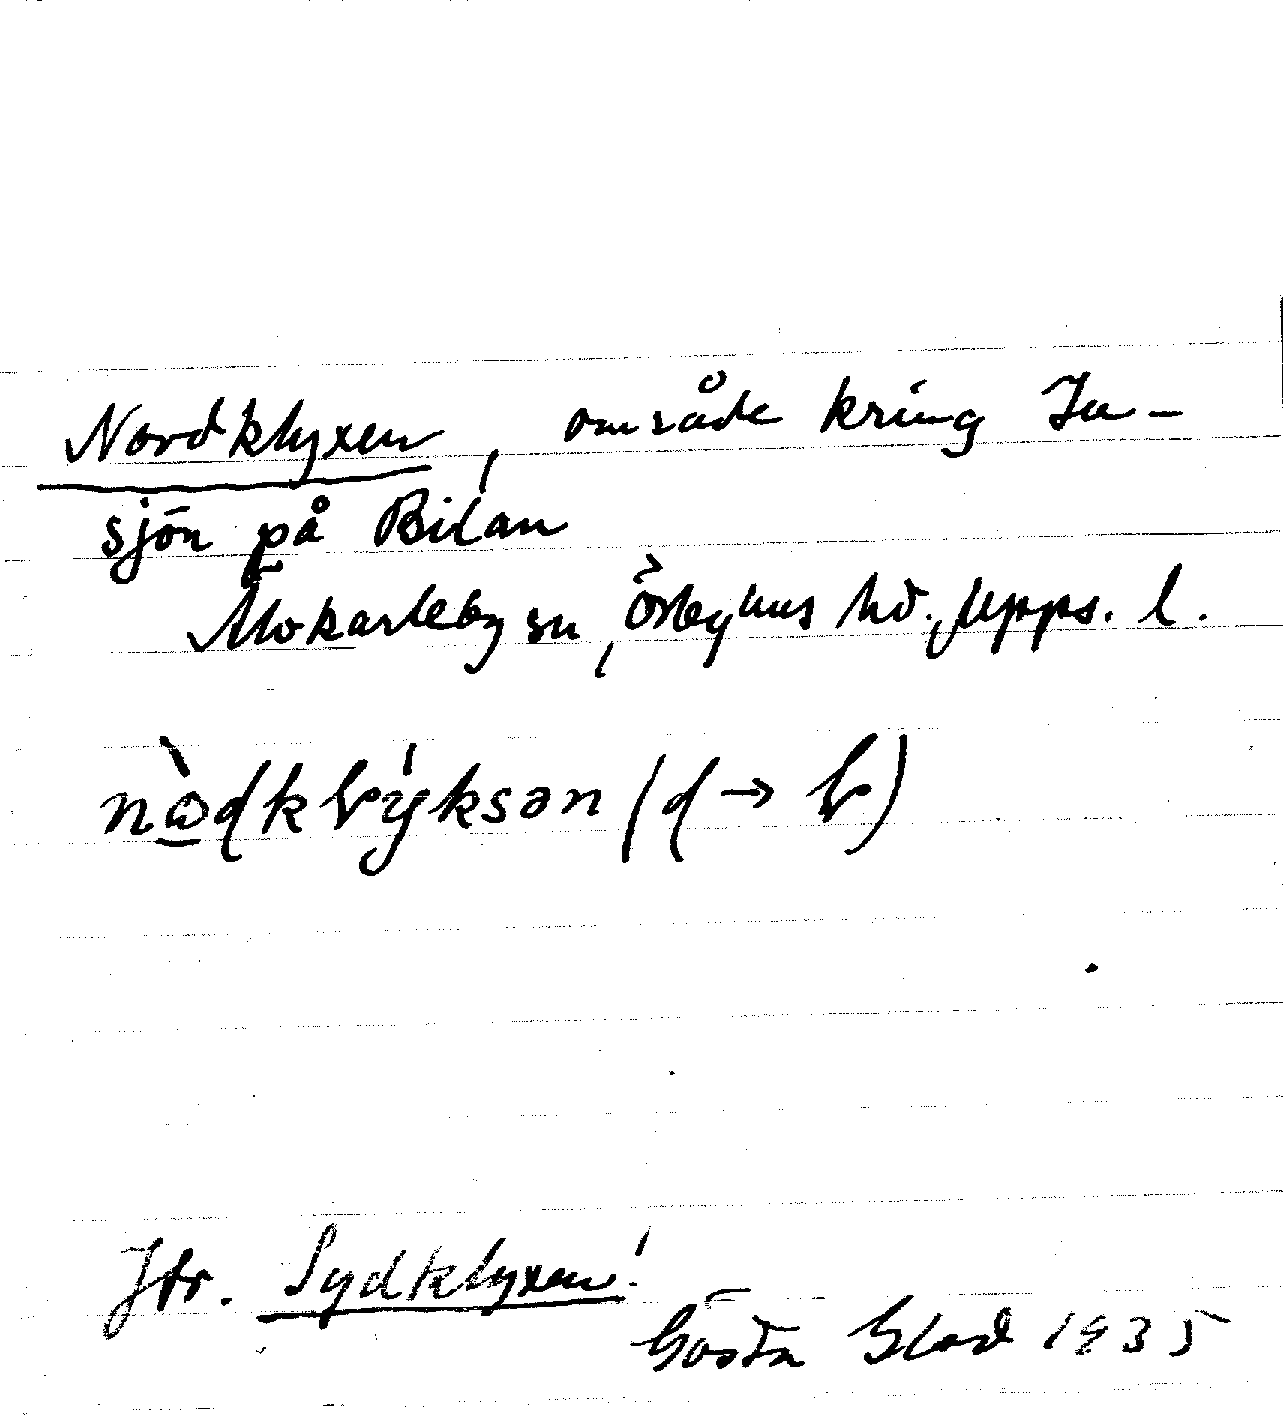 Nordklyxen, område kring In-
sjön på Bilan
Älvkarleby sn, Örbyhus hd., Upps. l.
Jfr. Sydklyxen!
Gösta Blad 1935